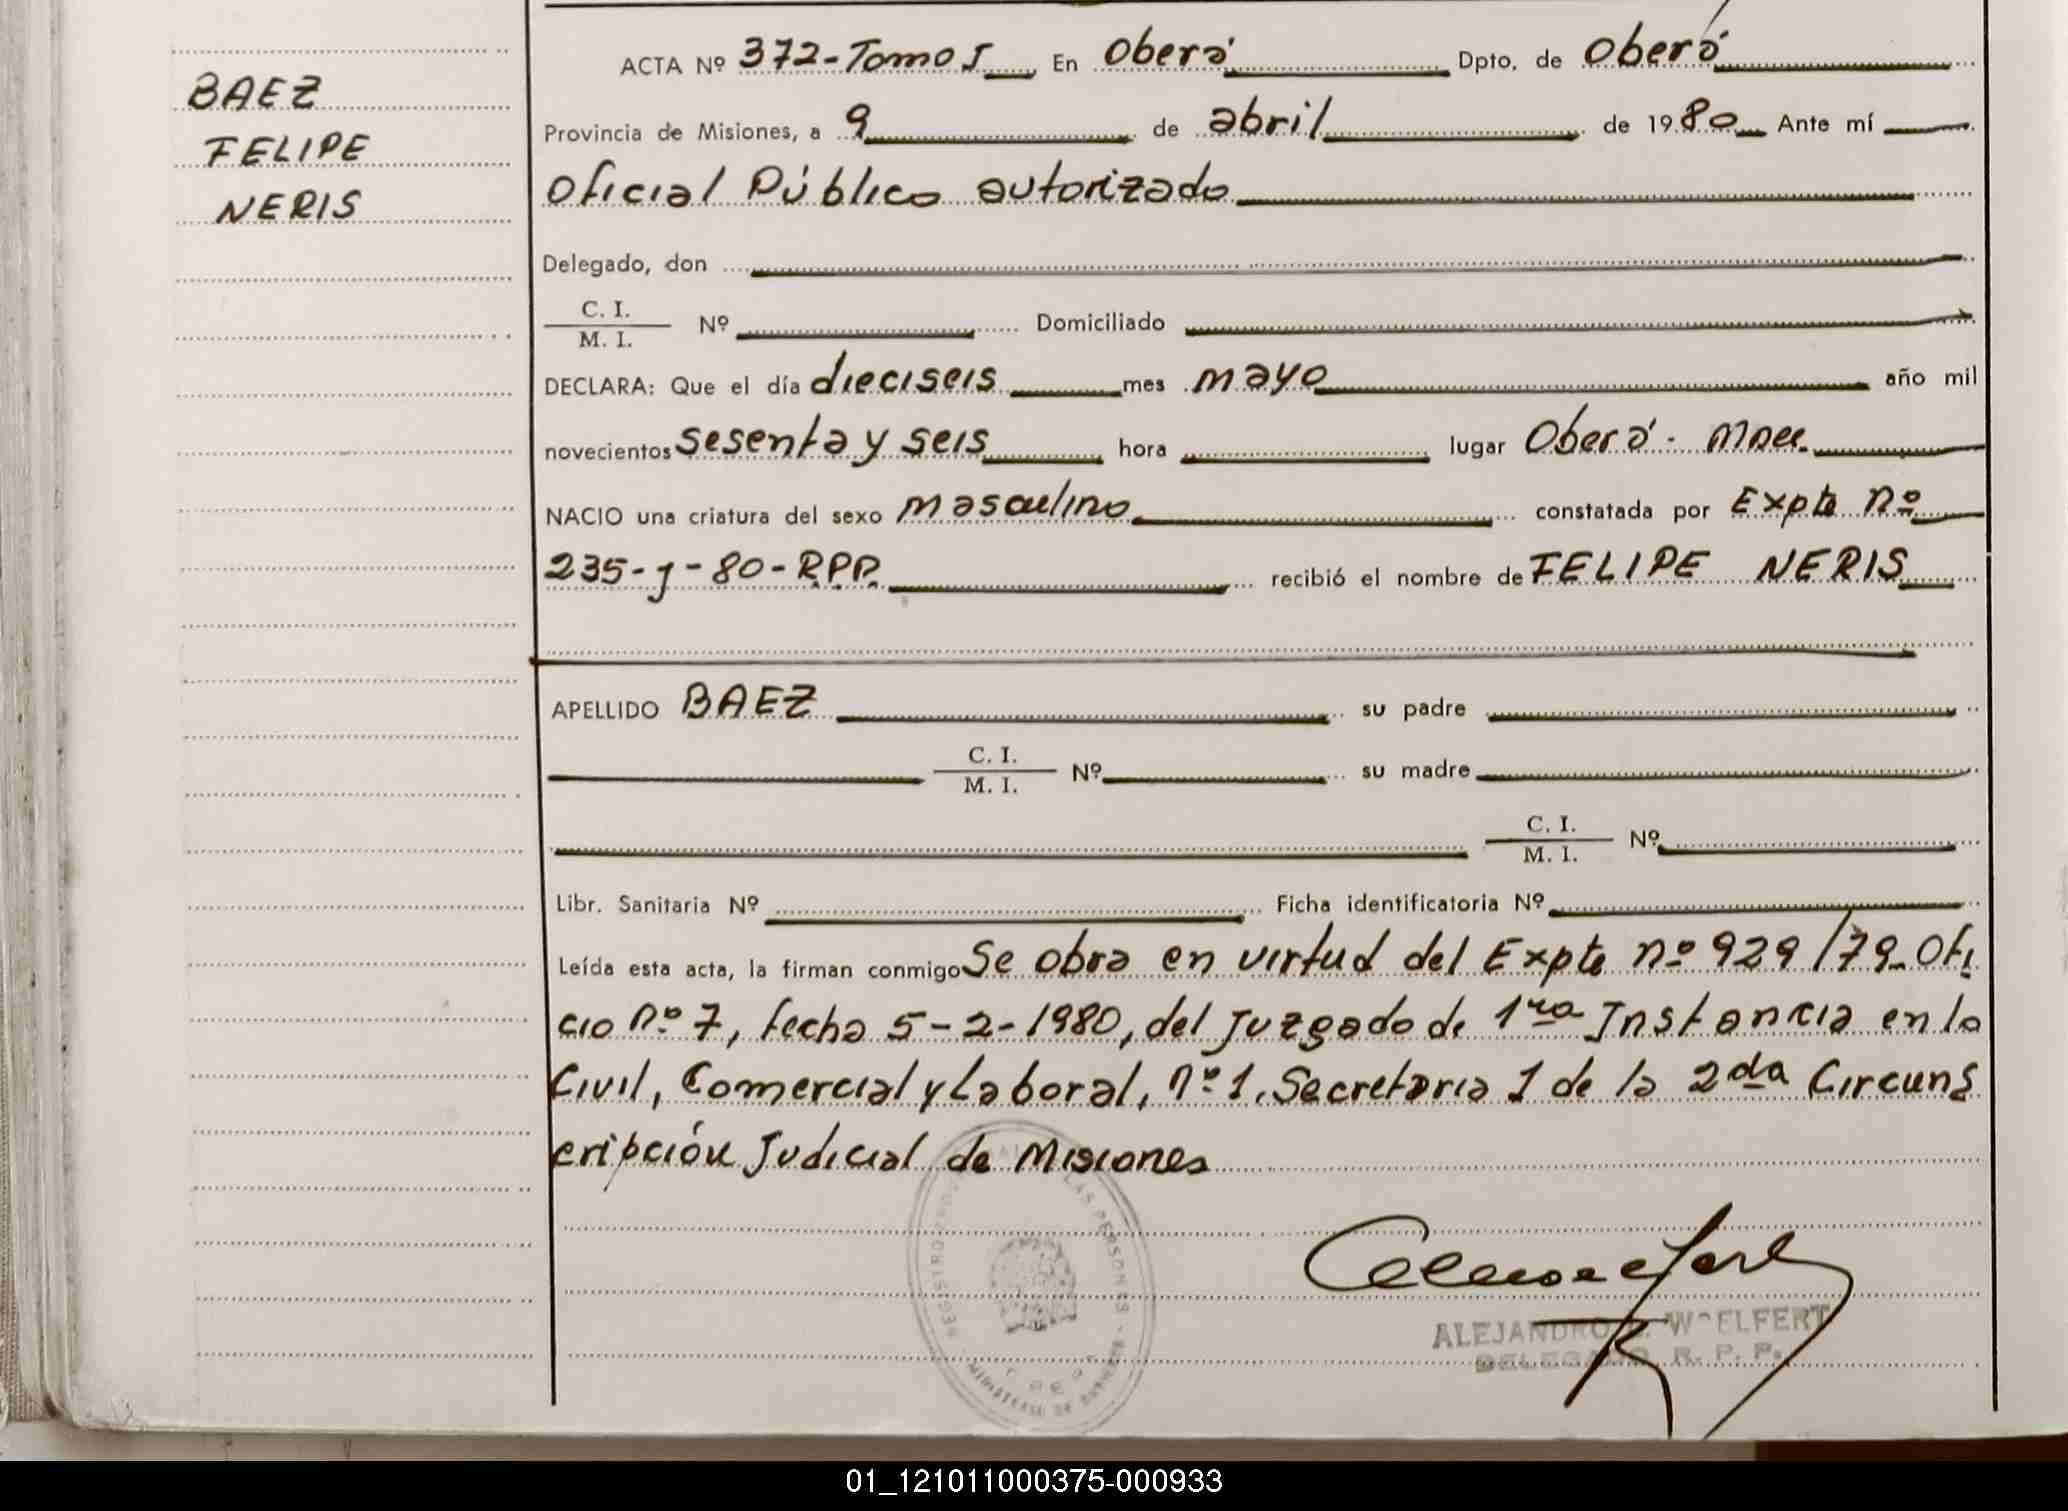 BAEZ
FELIPE
NERIS
ACTA Nº 372-Tomo I En Oberá Dpto. de Oberá
Provincia de Misiones, a 9 de abril de 1980 Ante mí
Oficial Público autorizado
Delegado, don
C. I.
M. I. Nº Domiciliado
DECLARA: Que el día dieciseis mes mayo año mil
novecientos sesenta y seis hora lugar Oberá.
NACIO una criatura del sexo masculino constatada por Expte nº
235-J-80-RPP. recibió el nombre de FELIPE NERIS
APELLIDO BAEZ su padre
C. I.
M. I. Nº su madre
C. I.
M. I. Nº
Libr. Sanitaria Nº Ficha identificatoria Nº
Leída esta acta, la firman conmigo Se obra en virtud del Expte nº 929/79. Ofi
cio nº 7, fecha 5-2-1980, del Juzgado de 1ra Instancia en lo
Civil, Comercial y Laboral, nº 1, Secretaria 1 de la 2da Circuns
cripción Judicial de Misiones
ALEJANDRO WOELFERT
DELEGADO R. P. P.
01_121011000375-000933